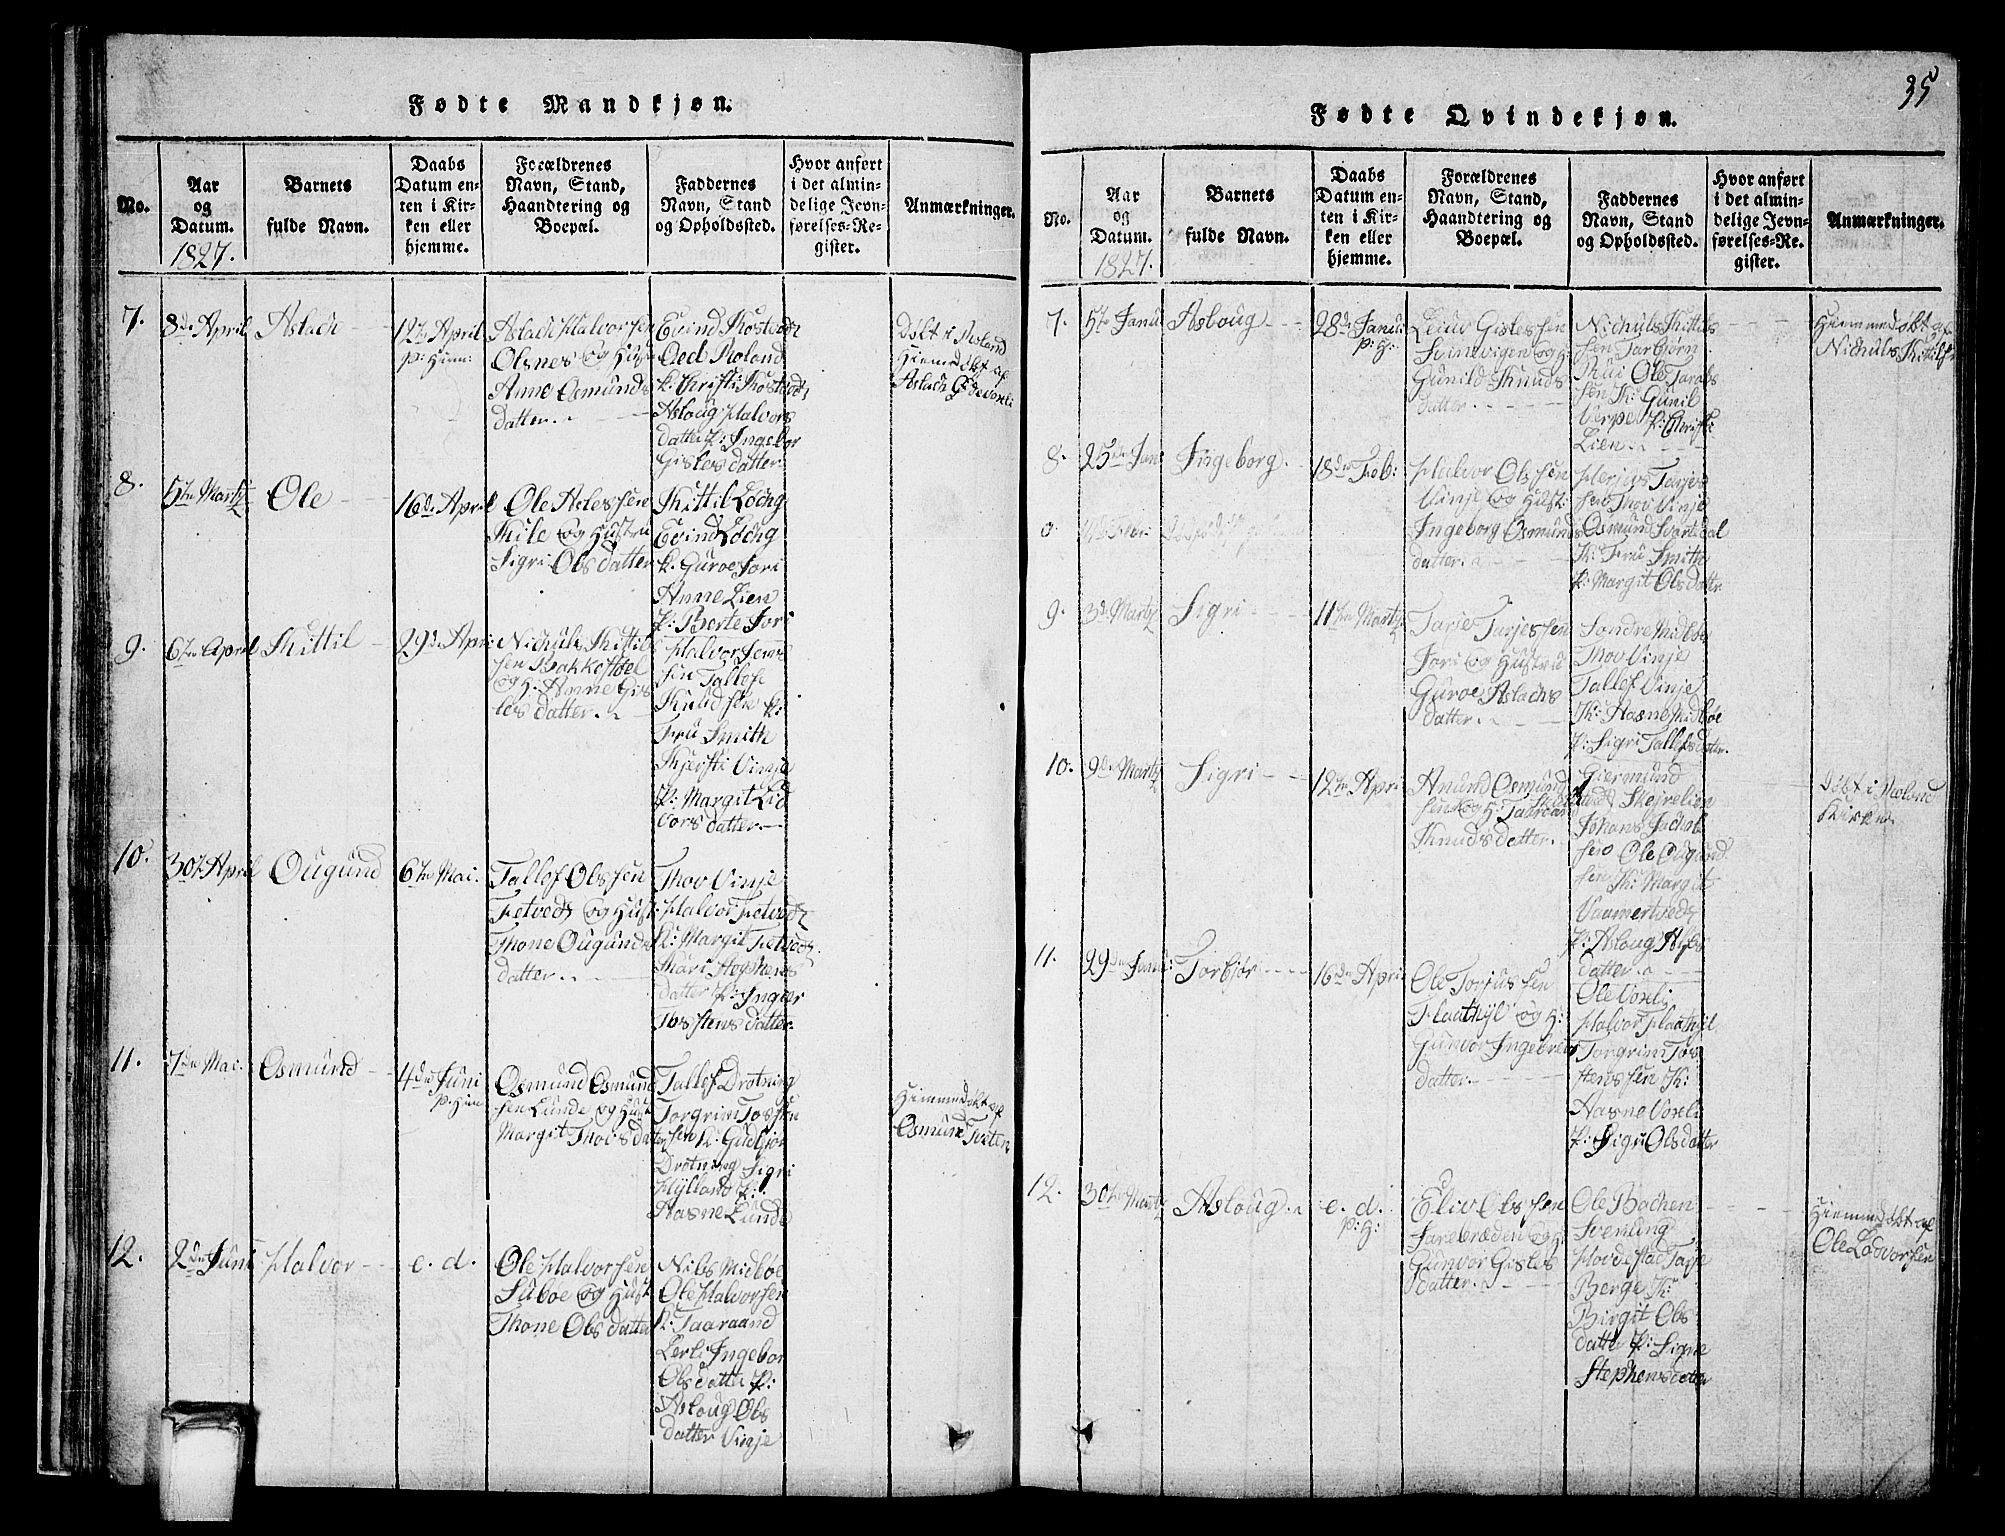 Fødte Mandkjøn.
No.
Aar
og
Datum.
1827.
Barnets
fulde Navn.
Daabs
Datum en-
ten i Kir-
ken eller
hjemme.
Forældrenes
Navn, Stand,
Haandtering og
Boepæl.
Faddernes
Navn, Stand
og Opholdssted.
Hvor anført
i det almin-
delige Jevn-
førelses-Re-
gister.
Anmærkninger.
7.
8de April
Aslach
12te April
P: Hiem:
Aslach Halvorsen
Olsnes og Hust
Anne Osmunds
datter.
Evind
Qed Roland
Asloug Halvors
datter P: Ingebor
Gisles datter
Døbt i Moland
Hiemmedøbt af
Aslach
8.
5te Martz
Ole
16de April
Ole Aslessen
Kile og Hustru
Sigri Ols datter
Kittil Loong
Evind Loong
K. Guroe Jori
Anne Lien
P: Berte Jori
9.
6te April
Kittil
29de April
Nichuls Kittil
sen Bakkestoel
og H: Anne Gis
les datter.
Halvor Jons
sen Tallef
Knudsen K:
Fru Smith
Kjersti Vinje
P: Margit Lid
vors datter.
10.
30te April
Ougund
6te Mai.
Tallef Olssen
Tetvedt og Hust:
Thone Ougunds
datter.
Thov Vinje
Halvor Tetvedt
K: Margit Tetvedt
Kari Stephens
datter P: Inger
Tosstens datter.
11.
7de Mai.
Osmund
4de Juni
P: Hiem
Osmund Osmund
sen Lunde og Hust
Margit Thovs datter
Tallef Drotning
Torgrim Tossten
sen K: Gudbjør
Drotning Sigri
Hylland P:
Aasne Lunde
Hiemmedøbt af
Osmund Tveten
12.
2de Juni
Halvor
e. d.
Ole Halvorsen
Suboe og Hust
Thone Ols datter
Nils Midbøe
Ole Halvorsen
K: Taaraand
Lerli Ingebor
Olsdatter P:
Aslaug Ols
datter Vinje
35
Fødte Qvindekjøn.
No.
Aar
og
Datum.
1827.
Barnets
fulde Navn.
Daabs
Datum en-
ten i Kir-
ken eller
hjemme.
Forældrenes
Navn, Stand,
Haandtering og
Boepæl.
Faddernes
Navn, Stand
og Opholdssted.
Hvor anført
i det almin-
delige Jevn-
førelses-Re-
gister.
Anmærkninger.
7.
5te Janu:
Asloug
28de Janu:
P: H:
Leiuv Gislessen
Svinevigen og H:
Gunild Knuds
datter.
Nichuls Kittils
sen Torbjørn
Ole Tarals
sen K: Gunil
Verpe P: Christi
Lien.
Hiemmedøbt af
Nichuls Kittils
8.
25de Jan:
Ingeborg
18de Feb:
Halvor Olssen
Vinje og Hust:
Ingeborg Osmunds
datter.
Herjus Tarjes
sen Thov Vinje
Osmund Svartdal
K: Fru Smith
P: Margit Olsdatter
9.
3de Martz
Sigri
11te Martz
Tarje Tarjessen
Jori og Hustru
Guroe Aslachs
datter.
Sondre Midbøe
Thov Vinje
Tallef Vinje
K: Aasne Midbøe
P: Sigri Tallefsdatter.
10.
9de Martz
Sigri
12te Apri
Anund Osmund
sen og H: Taaran
Knudsdatter.
Giermund
Skejrelien
Johans Jachob
sen Ole Ougund
sen K: Margit
Vaamertvedt
P: Asloug Asles
datter.
Døbt i Molend
Kirken
11.
29de Janu:
Torbjør
16de Apri
Ole Torjussen
Flaathyl og H:
Gunvor Ingebrets
datter.
Ole Voxli
Halvor Flaathyl
Torgrim Tos
stenssen K:
Aasne Voxli
P: Sigri Olsdatter
12.
30te Martz
Asloug
e. d.
P: H:
Eliv Olssen
Farebræden og H:
Gunvor Gisles
datter.
Ole Bachen
Svenung
Hovdestad Tarje
Berge K:
Birgit Ols
datter P: Signe
Stephensdatter
Hiemmedøbt af
Ole Lodvorsen